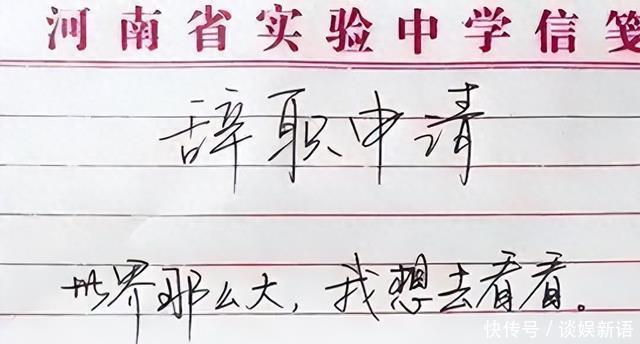 河南省实验中学信笺
辞职申请
世界那么大，我想去看看。
快传号／谈娱新语